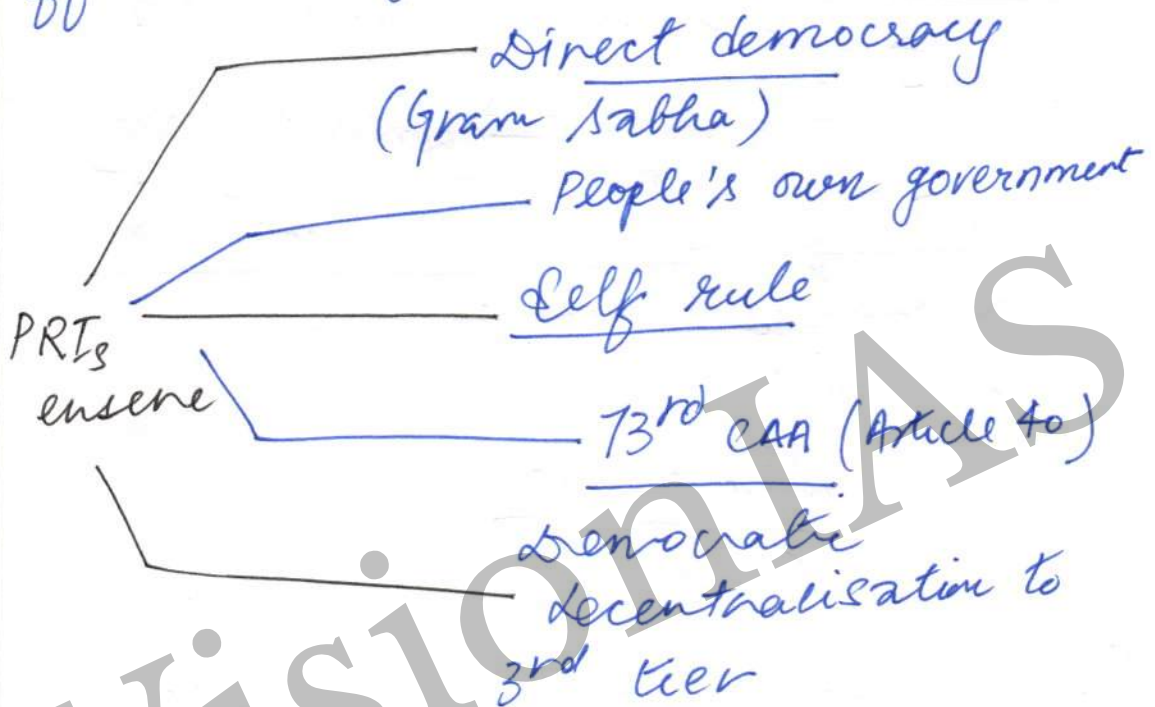 Direct democracy
(Gram Sabha)
People's own government
Self rule
PRIs
ensure
73rd CAA (Article 40)
Democratic
decentralisation to
3rd tier
VisionIAS